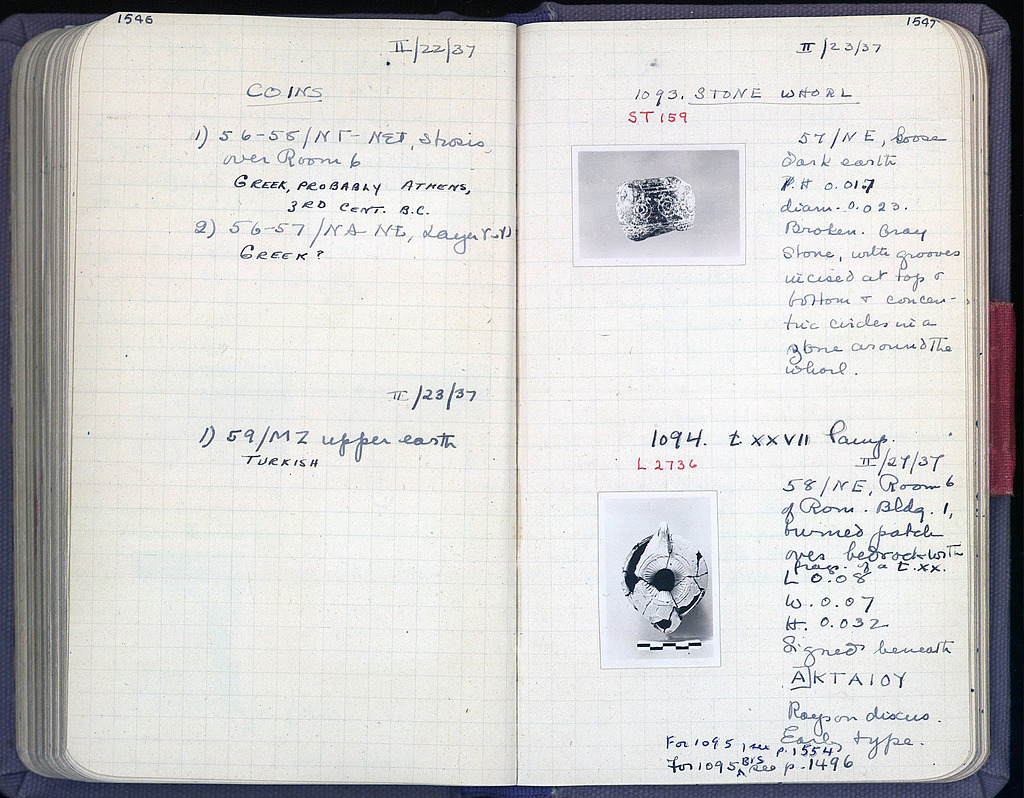 1546
II/22/37
COINS
1) 56-58/NΓ-NET, Strosis,
over Room 6
GREEK, PROBABLY ATHENS,
3RD CENT. B.C.
2) 56-57/NA-NE, Layer
GREEK?
II/23/37
1) 59/MZ upper earth
TURKISH
1547
II/23/37
1093. STONE WHORL
ST 159
57/NE, loose
Dark earth
P.H 0.017
diam. 0.023.
Broken. Gray
Stone, with grooves
incised at top &
bottom & concen-
tric circles in a
zone around the
whorl.
1094. t XXVII Lamp.
L 2736
II/27/37
58/NE, Room 6
of Rom. Bldg. 1,
burned patch
over bedrock with
frag. of a t. XX.
L 0.08
W. 0.07
H. 0.032
Signed beneath
A]KTAIOY
Rays on discus.
Early type.
For 1095, see p. 1554
For 1095 BIS A see p. 1496